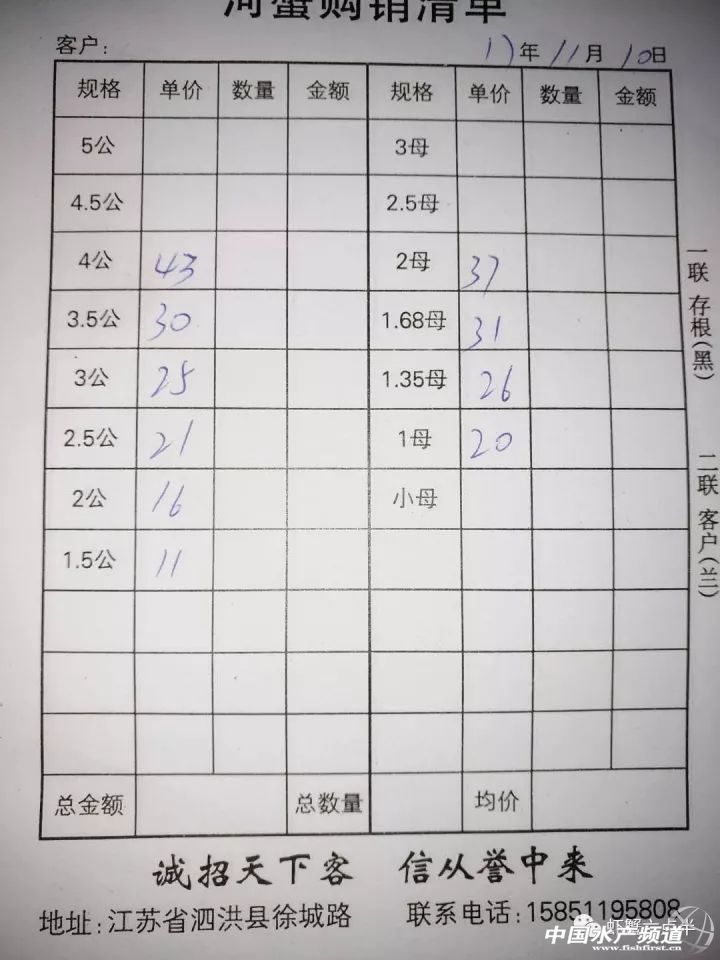 河蟹购销清单
客户: 17年11月10日
规格 单价 数量 金额 规格 单价 数量 金额
5公 3母
4.5公 2.5母
4公 43 2母 37
3.5公 30 1.68母 31
3公 25 1.35母 26
2.5公 21 1母 20
2公 16 小母
1.5公 11
总金额 总数量 均价
一联 存根(黑)
二联 客户(兰)
诚招天下客 信从誉中来
地址:江苏省泗洪县徐城路 联系电话:15851195808
虾蟹六点半
中国水产频道
www.fishfirst.cn